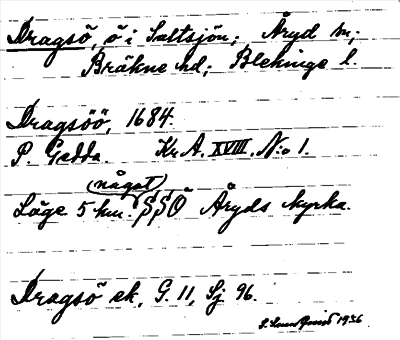 Dragsö, ö i Saltsjön; Åryd sn;
Bräkne hd; Blekinge l.
Dragsöö, 1684.
P. Gedda. Kr A. XVIII. N:o 1.
något
Läge 5 km. SSO Åryds kyrka.
Dragsö ek, G. 11, Sj 96.
1936